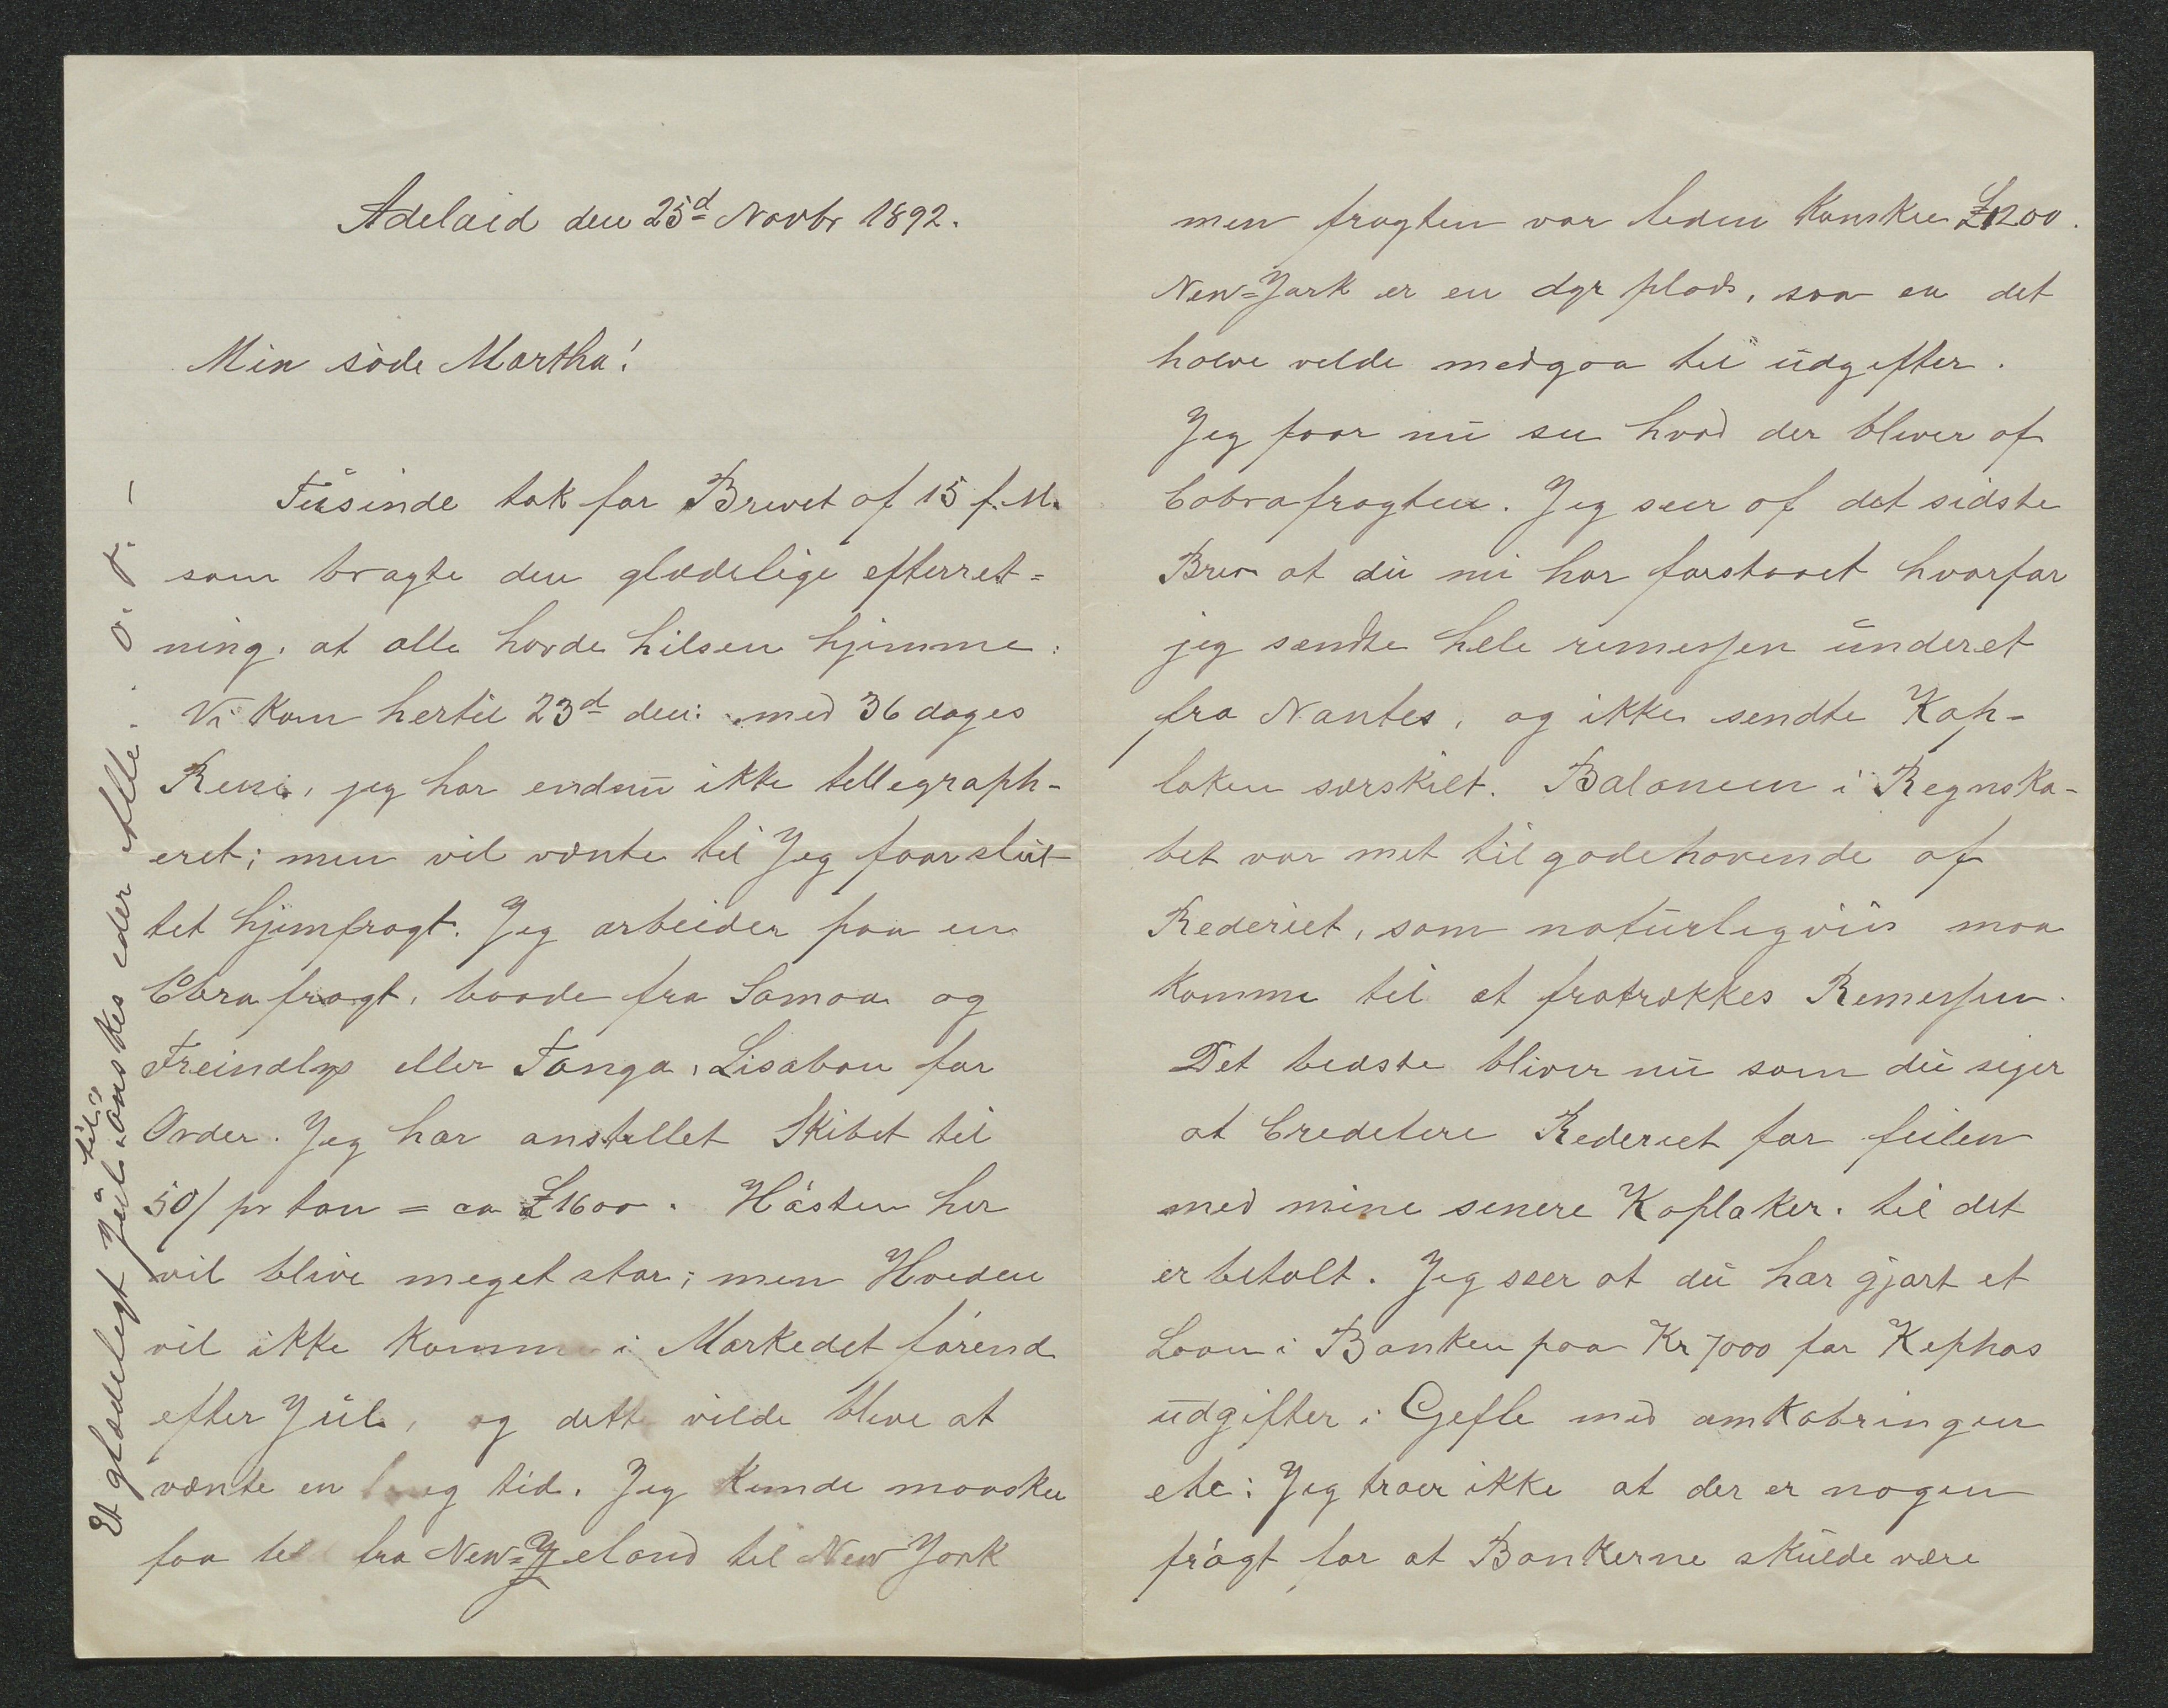 Adelaid den 25d Novbr 1892.
Min söde Martha!
Tusinde tak for Brevet af 15 f. M.
som bragte den glædelige efterret=
ning, at alle havde hilsen hjimme:
Vi kom hertil 23d den: med 36 dages
Reise, jeg har endnu ikke tellegraph-
eret; men vil vænte til Jeg faar slut-
tet hjimfragt. Jeg arbeider paa en
Cobra fragt, baade fra Samoa og
Freindlys eller Tonga, Lisabon for
Order. Jeg har anstellet Skibet til
50/ pr ton = ca £1600. Hästen her
vil blive meget stor; men Hveden
vil ikke komme i Markedet förend
efter Jul, og dette vilde blive at
vænte en lang tid. Jeg kunde maaskee
faa til fra New=Zeland til New York
Et glædeligt Jul tilönskes eder Alle. o. s. -
men fragten var leden kanskee £1200.
New=York er en dyr plads, saa en det
halve vilde medgaa til udgifter.
Jeg faar nu see hvad der bliver af
Cobrafragten. Jeg seer af det sidste
Brev at du nu har forstaaet hvorfor
jeg sendte hele remessen underet
fra Nantes, og ikke sendte Kap-
laken særskilt. Balancen i Regnska-
bet var mit tilgodehavende af
Rederiet, som naturligviis maa
komme til at fratrækkes Remessen.
Det bedste bliver nu som du siger
at Creditere Rederiet for feilen
med mine senere Kaplaker. til det
er betalt. Jeg seer at du har gjort et
Laan i Banken paa Kr 7000 for Kephas
udgifter i Gefle med omkobringen
etc: Jeg troer ikke at der er nogen
frögt for at Bankerne skulde være